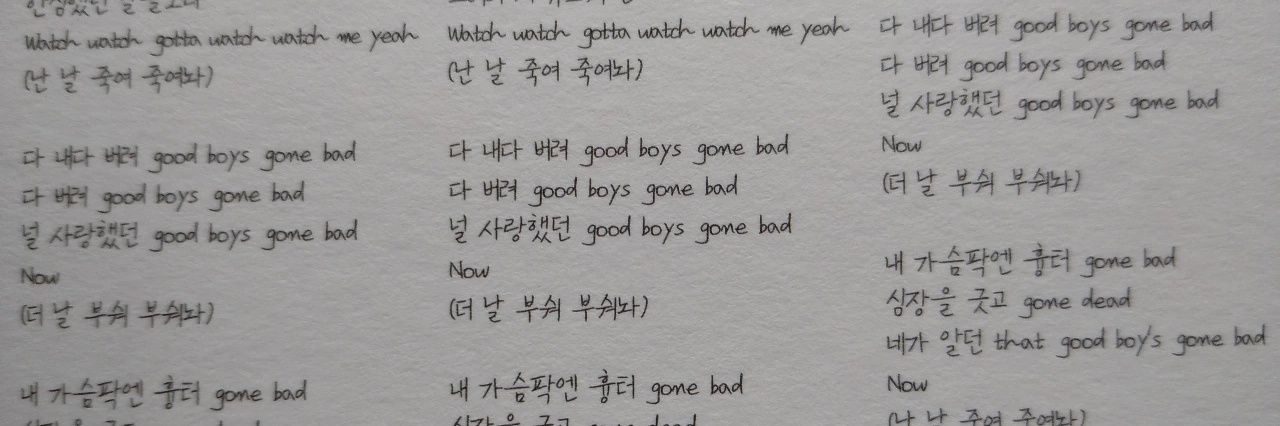 Watch watch gotta watch watch me yeah
(난 날 죽여 죽여놔)
다 내다 버려 good boys gone bad
다 버려 good boys gone bad
널 사랑했던 good boys gone bad
Now
(더 날 부숴 부숴놔)
내 가슴팍엔 흉터 gone bad
Watch watch gotta watch watch me yeah
(난 날 죽여 죽여놔)
다 내다 버려 good boys gone bad
다 버려 good boys gone bad
널 사랑했던 good boys gone bad
Now
(더 날 부숴 부숴놔)
내 가슴팍엔 흉터 gone bad
다 내다 버려 good boys gone bad
다 버려 good boys gone bad
널 사랑했던 good boys gone bad
Now
(더 날 부숴 부숴놔)
내 가슴팍엔 흉터 gone bad
심장을 긋고 gone dead
네가 알던 that good boy's gone bad
Now